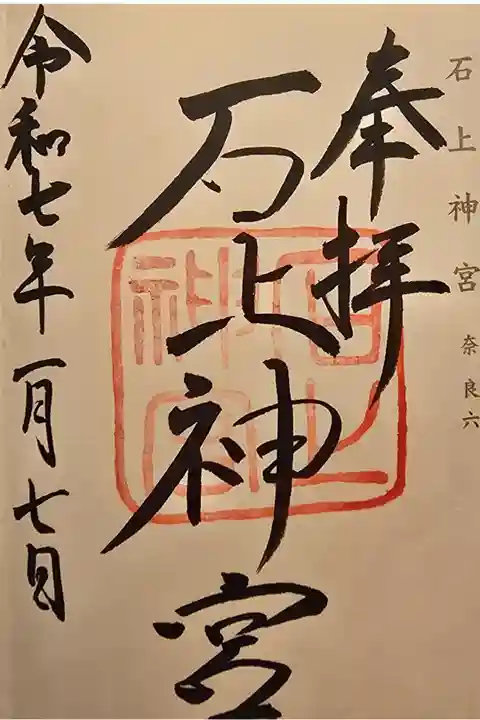 石上神宮 奈良六
奉拝
石上神宮
石上神宮
令和七年一月七日